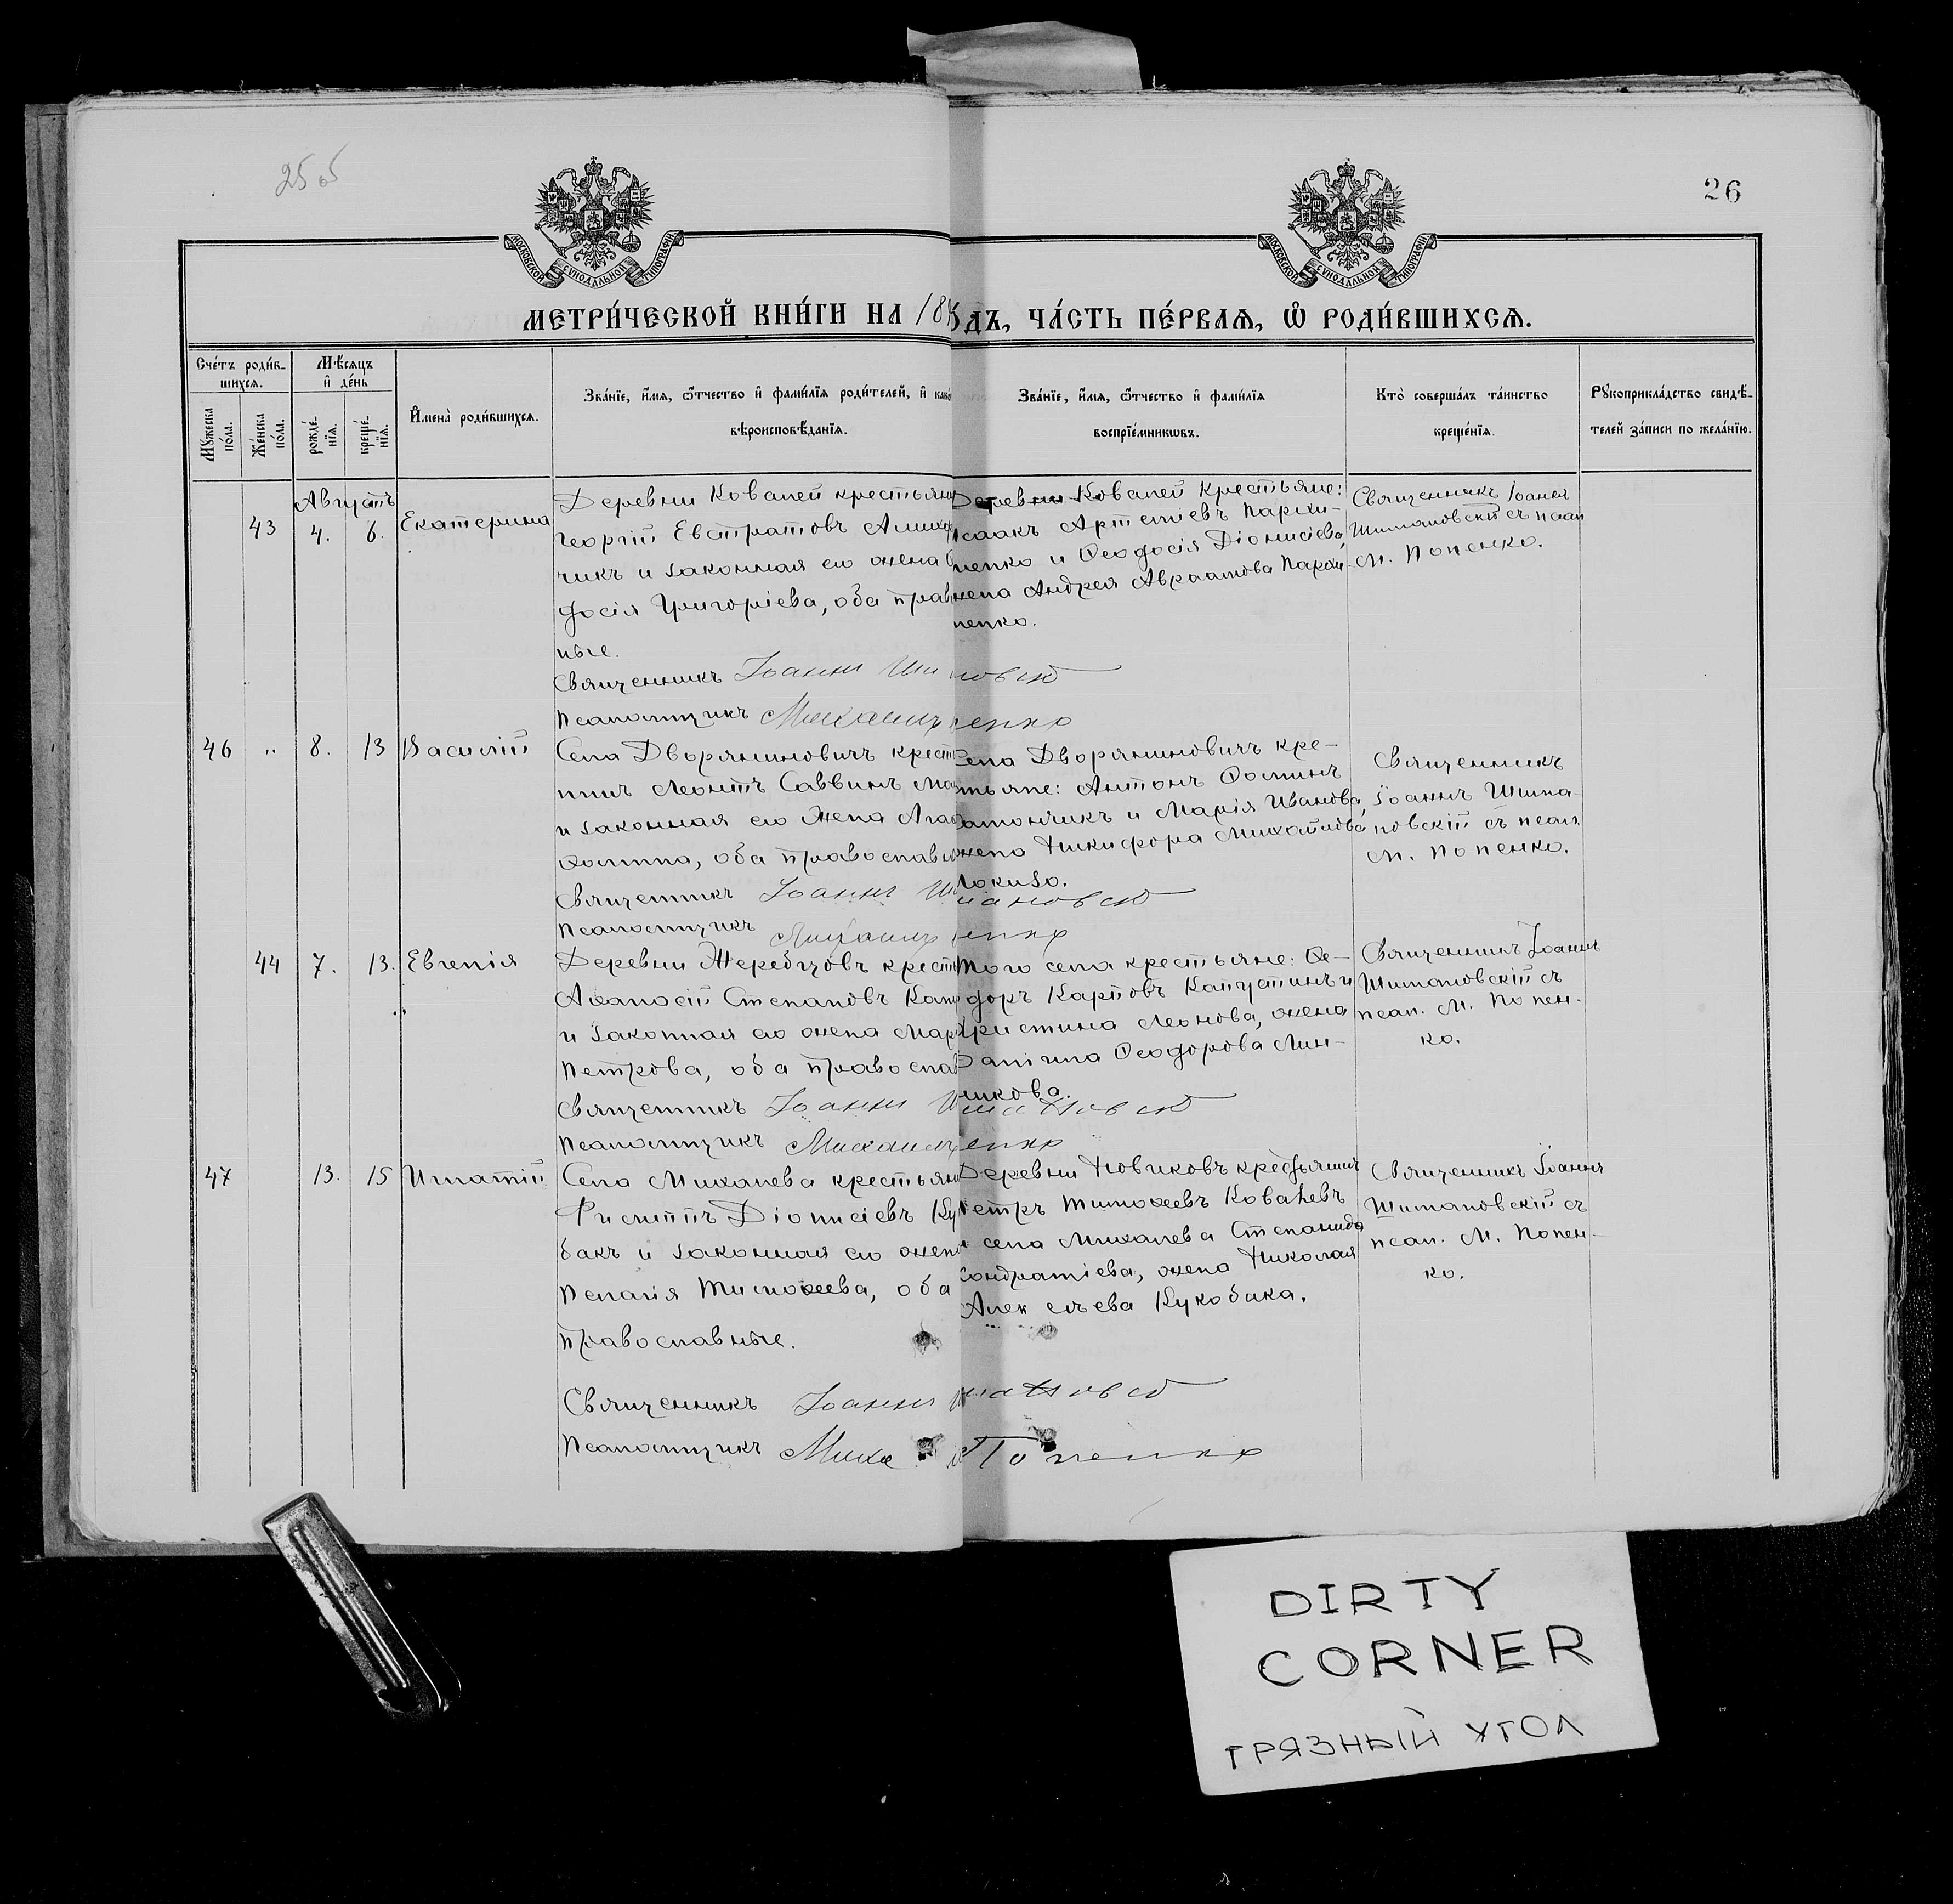 25 об
26
МОСКОВСКОЙ СУНОДАЛЬНОЙ ТИПОГРАФІИ
МОСКОВСКОЙ СУНОДАЛЬНОЙ ТИПОГРАФІИ
МЕТРИ́ЧЕСКОЙ КНИ́ГИ НА 18
ДЪ, ЧА́СТЬ ПЕ́РВАѦ, Ѡ҆ РОДИ́ВШИХСѦ.
Сче́тъ роди́в-
шихсѧ.
Мꙋ́жеска по́ла.
Же́нска по́ла.
Мѣ́сѧцъ
и҆ де́нь
рожде́-
нїѧ.
креще́-
нїѧ.
И҆мена̀ роди́вшихсѧ.
Зва́нїе, и҆́мѧ, ѻ҆́тчество и҆ фами́лїѧ роди́телей, и҆ како
вѣроисповѣ́данїѧ.
Зва́нїе, и҆́мѧ, ѻ҆́тчество и҆ фами́лїѧ
воспрїе́мникѡвъ.
Кто̀ соверша́лъ та́инство
креще́нїѧ.
Рꙋкоприкла́дство свидѣ́-
телей за́писи по жела́нїю.
Августъ
43
4.
6.
Екатерина
Деревни Ковалей крестьяни
Георгій Евстратовъ
чикъ и законная его жена
досія Григоріева, оба прав
ные.
Священникъ Іоаннъ
Псаломщикъ Михаилъ
Деревни Ковалей крестьяне:
Исаакъ Артеміевъ Пархи-
менко и Ѳеодосія Діонисіева,
жена Андрея Авраамова Пархи-
менко.
Священникъ Іоаннъ
Шимановскій съ псал
М. Попенко.
46
"
8.
13
Василій
Села Дворяниновичъ крест
нинъ Леонтій Саввинъ
и законная его жена Ага
Ѳомина, оба православ
Священникъ Іоаннъ
Псаломщикъ Михаилъ
Села Дворяниновичъ кре-
стьяне: Антонъ Ѳоминъ
и Марія Иванова,
жена Никифора Михайлова
Священникъ
Іоаннъ Шима-
новскій съ псал.
М. Попенко.
44
7.
13.
Евгенія
Деревни Жеребцовъ кресть
Аѳанасій Степановъ Капу
и законная его жена Мар
Петрова, оба правосла
Священникъ Іоаннъ
Псаломщикъ Михаилъ
Того села крестьяне: Ѳе-
доръ Карповъ Капустинъ и
Христина Леонова, жена
Ѳеодорова Лин-
никова.
Священникъ Іоаннъ
Шимановскій съ
псал. М. Попен-
ко.
47
13.
15
Игнатій
Села Михалева крестьяни
Филиппъ Діонисіевъ Ку
бакъ и законная его жена
Пелагія Тимоѳеева, оба
православные.
Священникъ Іоаннъ
Псаломщикъ Миха
Деревни Новиковъ крестьянинъ
Петръ Тимоѳеевъ Ковалевъ
и села Михалева Степанида
Кондратіева, жена Николая
Алексѣева Кукобака.
Попенко
Священникъ Іоаннъ
Шимановскій съ
псал. М. Попен-
ко.
DIRTY
CORNER
ГРЯЗНЫЙ УГОЛ